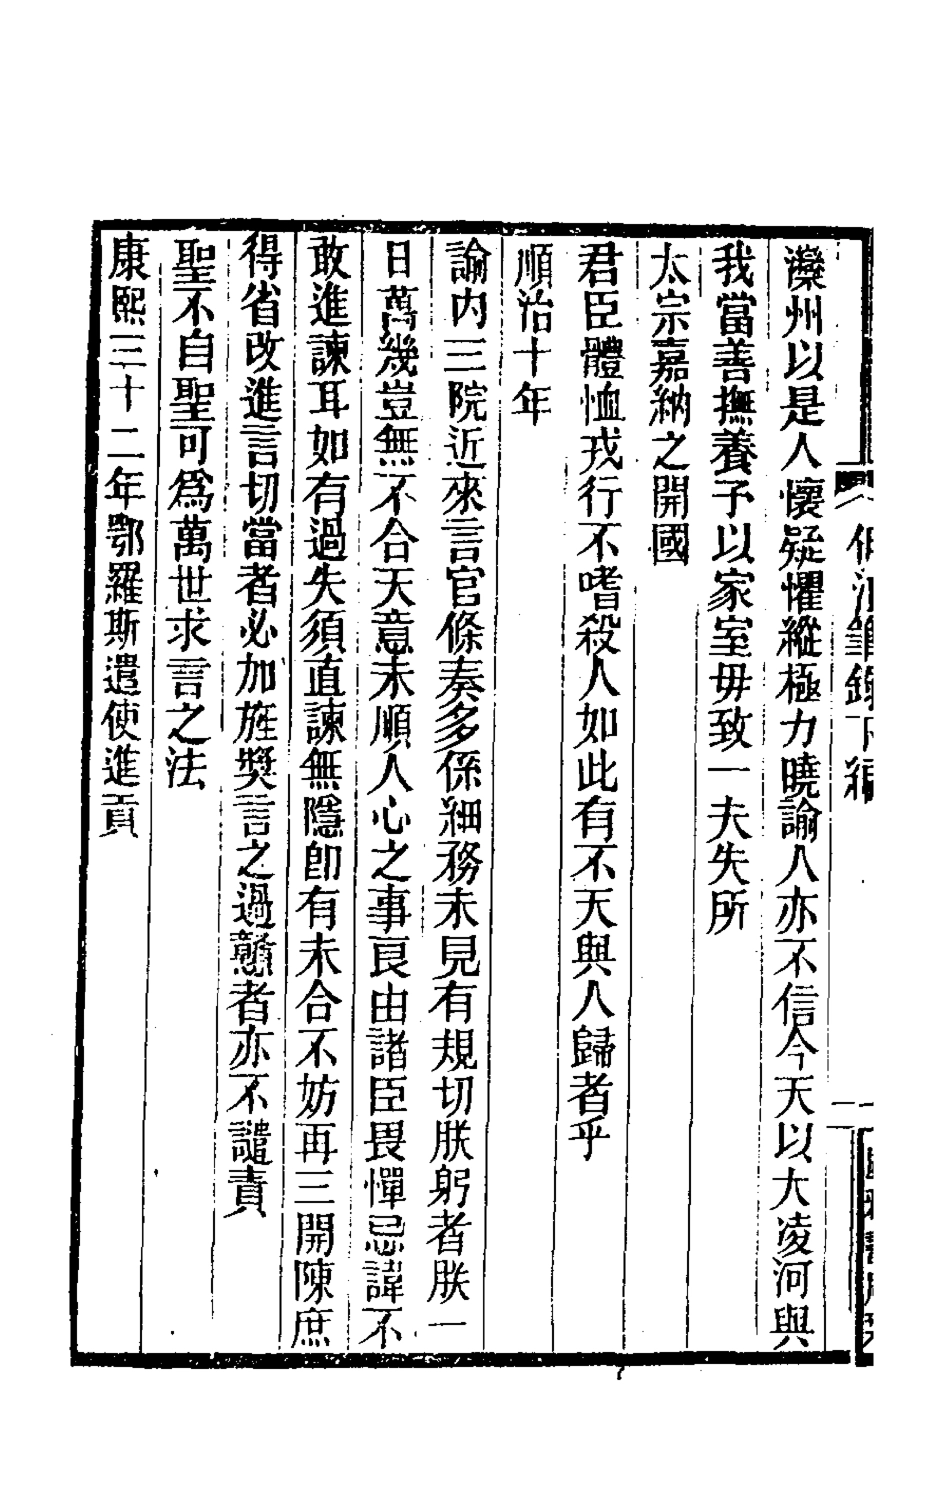 灤州以是人懷疑懼縱極力曉諭人亦不信今天以大凌河與
我當善撫養予以家室毋致一夫失所
太宗嘉納之開國
君臣體恤戎行不嗜殺人如此有不天與人歸者乎
順治十年
諭内三院近來言官條奏多係細務未見有規切朕躬者朕一
日萬幾豈無不合天意未順人心之事良由諸臣畏憚忌諱不
敢進諫耳如有過失須直諫無隱卽有未合不妨再三開陳庶
得省改進言切當者必加旌奬言之過戇者亦不譴責
聖不自聖可爲萬世求言之法
康熙三十二年鄂羅斯遣使進貢